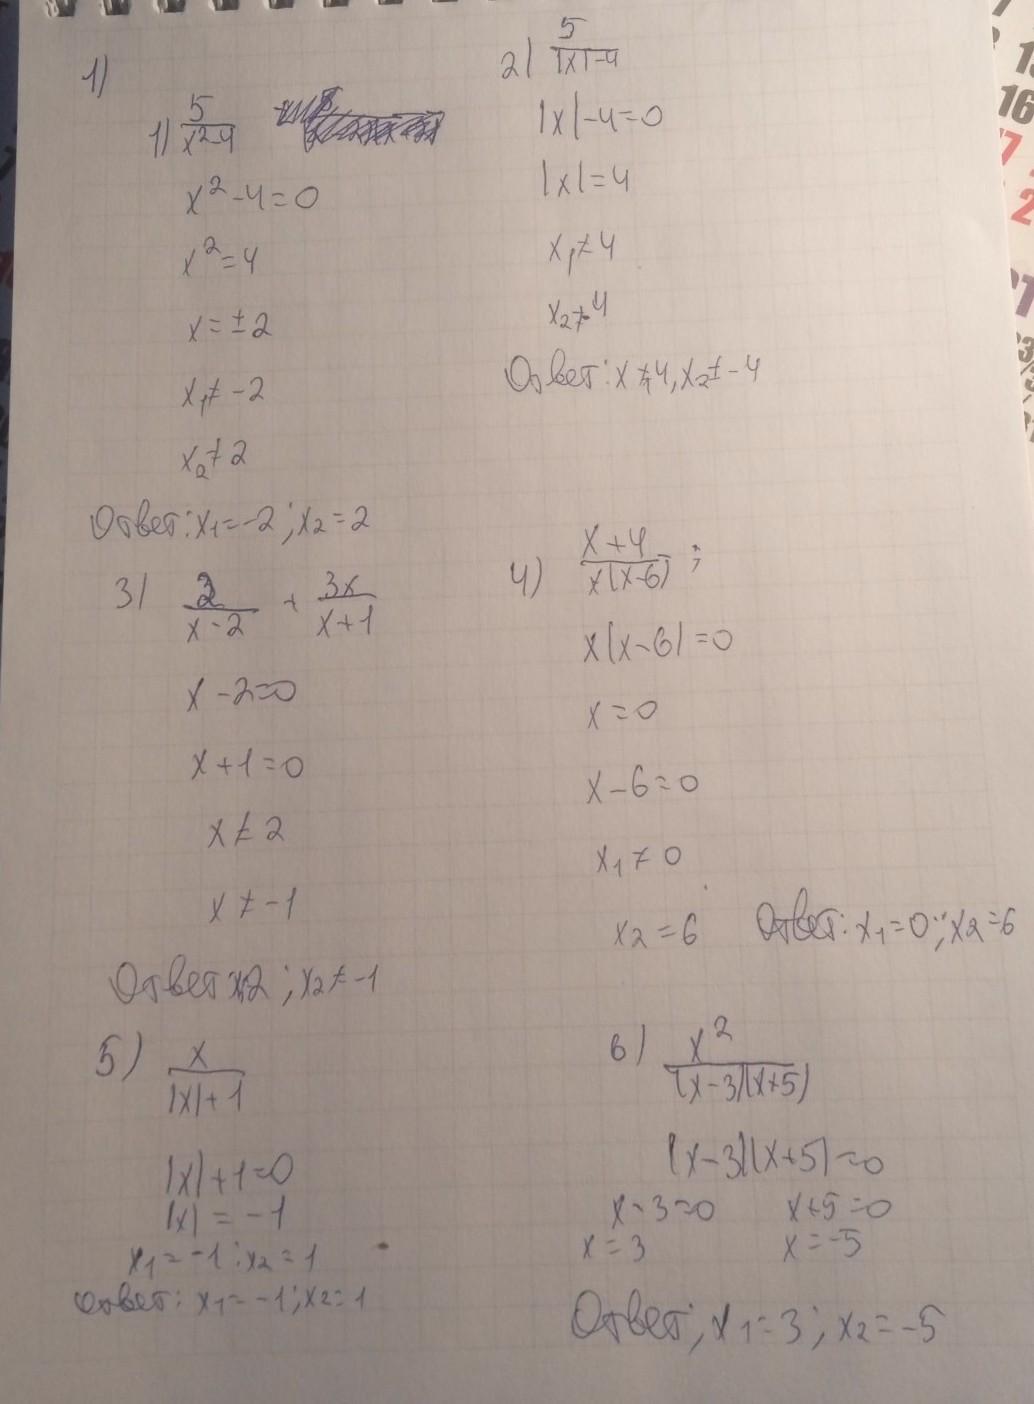 1)
1) 5/(x²-4)
x²-4=0
x²=4
x=±2
x₁≠-2
x₂≠2
Ответ: x₁=-2; x₂=2
2) 5/(|x|-4)
|x|-4=0
|x|=4
x₁≠4
x₂≠4
Ответ: x≠4, x₂≠-4
3) 3/(x-2) + 3x/(x+1)
x-2=0
x+1=0
x≠2
x≠-1
Ответ x≠2; x₂≠-1
4) (x+4)/(x(x-6));
x(x-6)=0
x=0
x-6=0
x₁≠0
x₂=6
Ответ: x₁=0; x₂=6
5) x/(|x|+1)
|x|+1=0
|x|=-1
x₁=-1; x₂=1
Ответ: x₁=-1; x₂=1
6) x²/((x-3)(x+5))
(x-3)(x+5)=0
x-3=0 x+5=0
x=3 x=-5
Ответ; x₁=3; x₂=-5
16